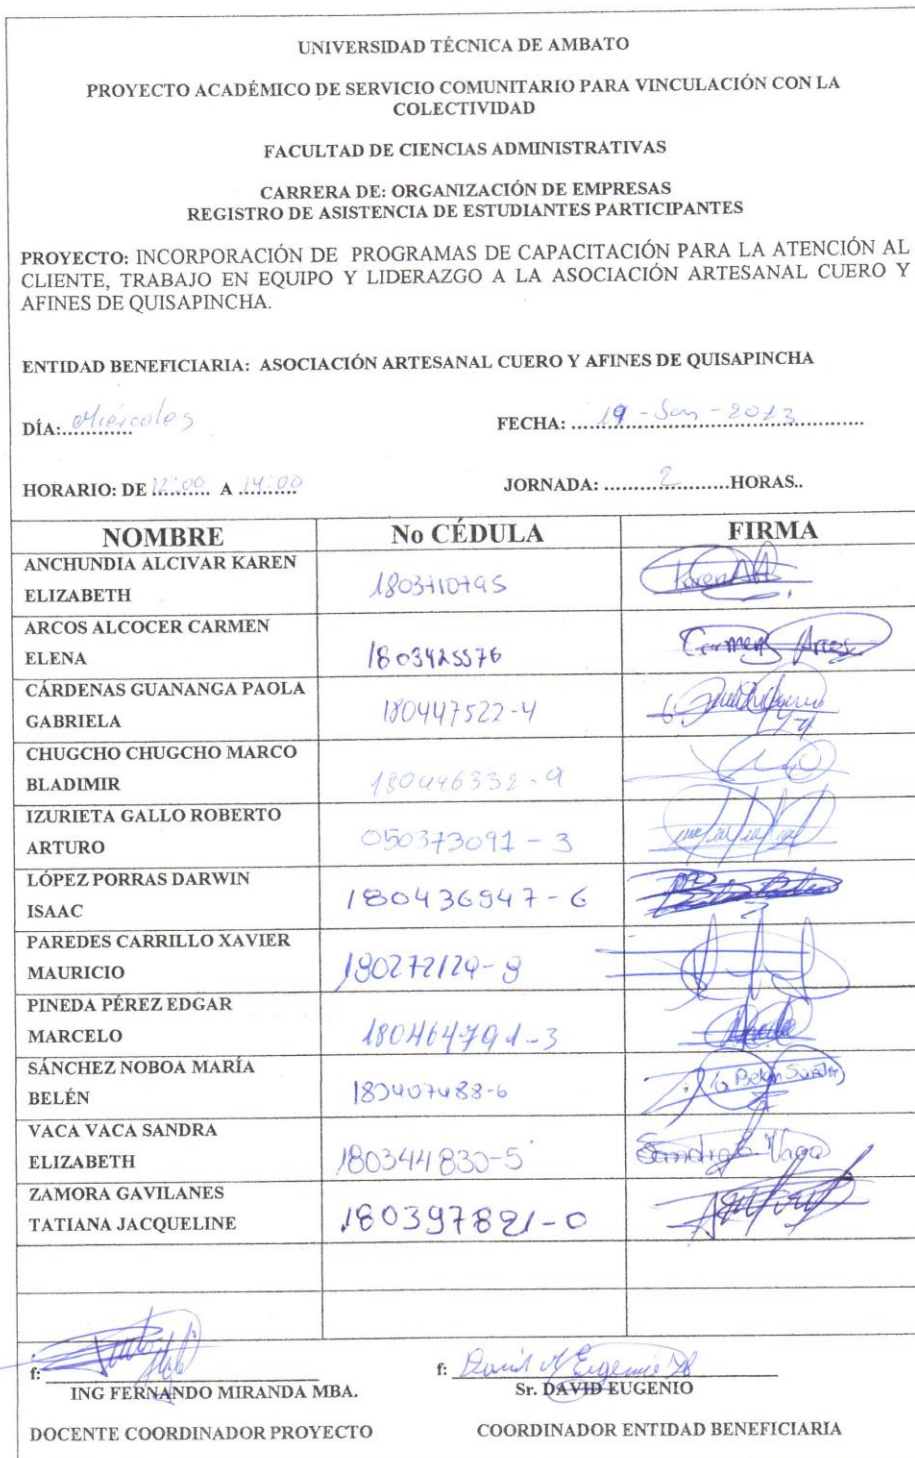 UNIVERSIDAD TÉCNICA DE AMBATO
PROYECTO ACADÉMICO DE SERVICIO COMUNITARIO PARA VINCULACIÓN CON LA
COLECTIVIDAD
FACULTAD DE CIENCIAS ADMINISTRATIVAS
CARRERA DE: ORGANIZACIÓN DE EMPRESAS
REGISTRO DE ASISTENCIA DE ESTUDIANTES PARTICIPANTES
PROYECTO: INCORPORACIÓN DE PROGRAMAS DE CAPACITACIÓN PARA LA ATENCIÓN AL
CLIENTE, TRABAJO EN EQUIPO Y LIDERAZGO A LA ASOCIACIÓN ARTESANAL CUERO Y
AFINES DE QUISAPINCHA.
ENTIDAD BENEFICIARIA: ASOCIACIÓN ARTESANAL CUERO Y AFINES DE QUISAPINCHA
DÍA: Miércoles FECHA: 19 - Jun - 2013
HORARIO: DE 12:00 A 14:00 JORNADA: 2 HORAS..
NOMBRE No CÉDULA FIRMA
ANCHUNDIA ALCIVAR KAREN
ELIZABETH 1803710795 Karen
ARCOS ALCOCER CARMEN
ELENA 1803425576 Carmen Arcos
CÁRDENAS GUANANGA PAOLA
GABRIELA 180447522-4
CHUGCHO CHUGCHO MARCO
BLADIMIR 180446332-9
IZURIETA GALLO ROBERTO
ARTURO 050373091-3
LÓPEZ PORRAS DARWIN
ISAAC 180436947-6
PAREDES CARRILLO XAVIER
MAURICIO 180272129-8
PINEDA PÉREZ EDGAR
MARCELO 180464791-3
SÁNCHEZ NOBOA MARÍA
BELÉN 180407488-6 Belén Sánchez
VACA VACA SANDRA
ELIZABETH 180344830-5 Sandra Vaca
ZAMORA GAVILANES
TATIANA JACQUELINE 180397821-0
f: f: David Eugenio
ING FERNANDO MIRANDA MBA. Sr. DAVID EUGENIO
DOCENTE COORDINADOR PROYECTO COORDINADOR ENTIDAD BENEFICIARIA